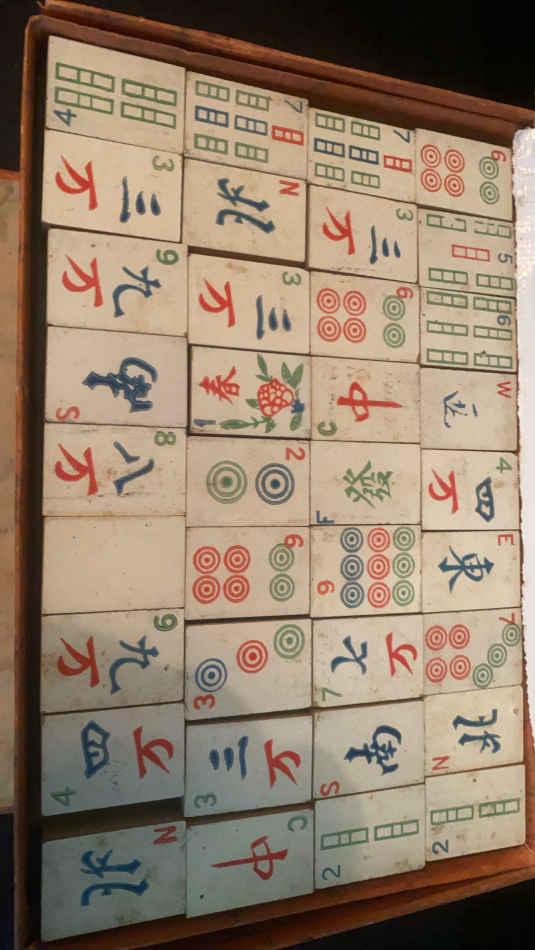 4
7
7
6
3 三万
N 北
3 三万
5
9 九万
3 三万
6
6
S 南
1 春
C 中
W
8 八万
2
F 發
4 四万
6
9
E 東
9 九万
3
7 七万
7
4 四万
3 三万
S 南
N 北
N 北
C 中
2
2